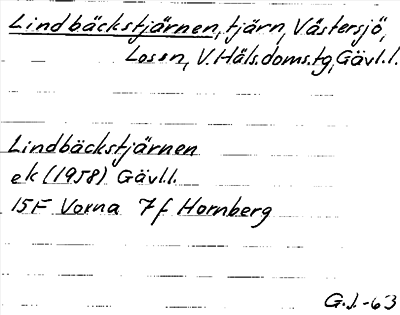 Lindbäckstjärnen, tjärn, Västersjö,
Losen, V. Häls. doms.tg, Gävl.l.
Lindbäckstjärnen
ek (1958) Gävl.l.
15F Vorna 7f Hornberg
G.J.-63